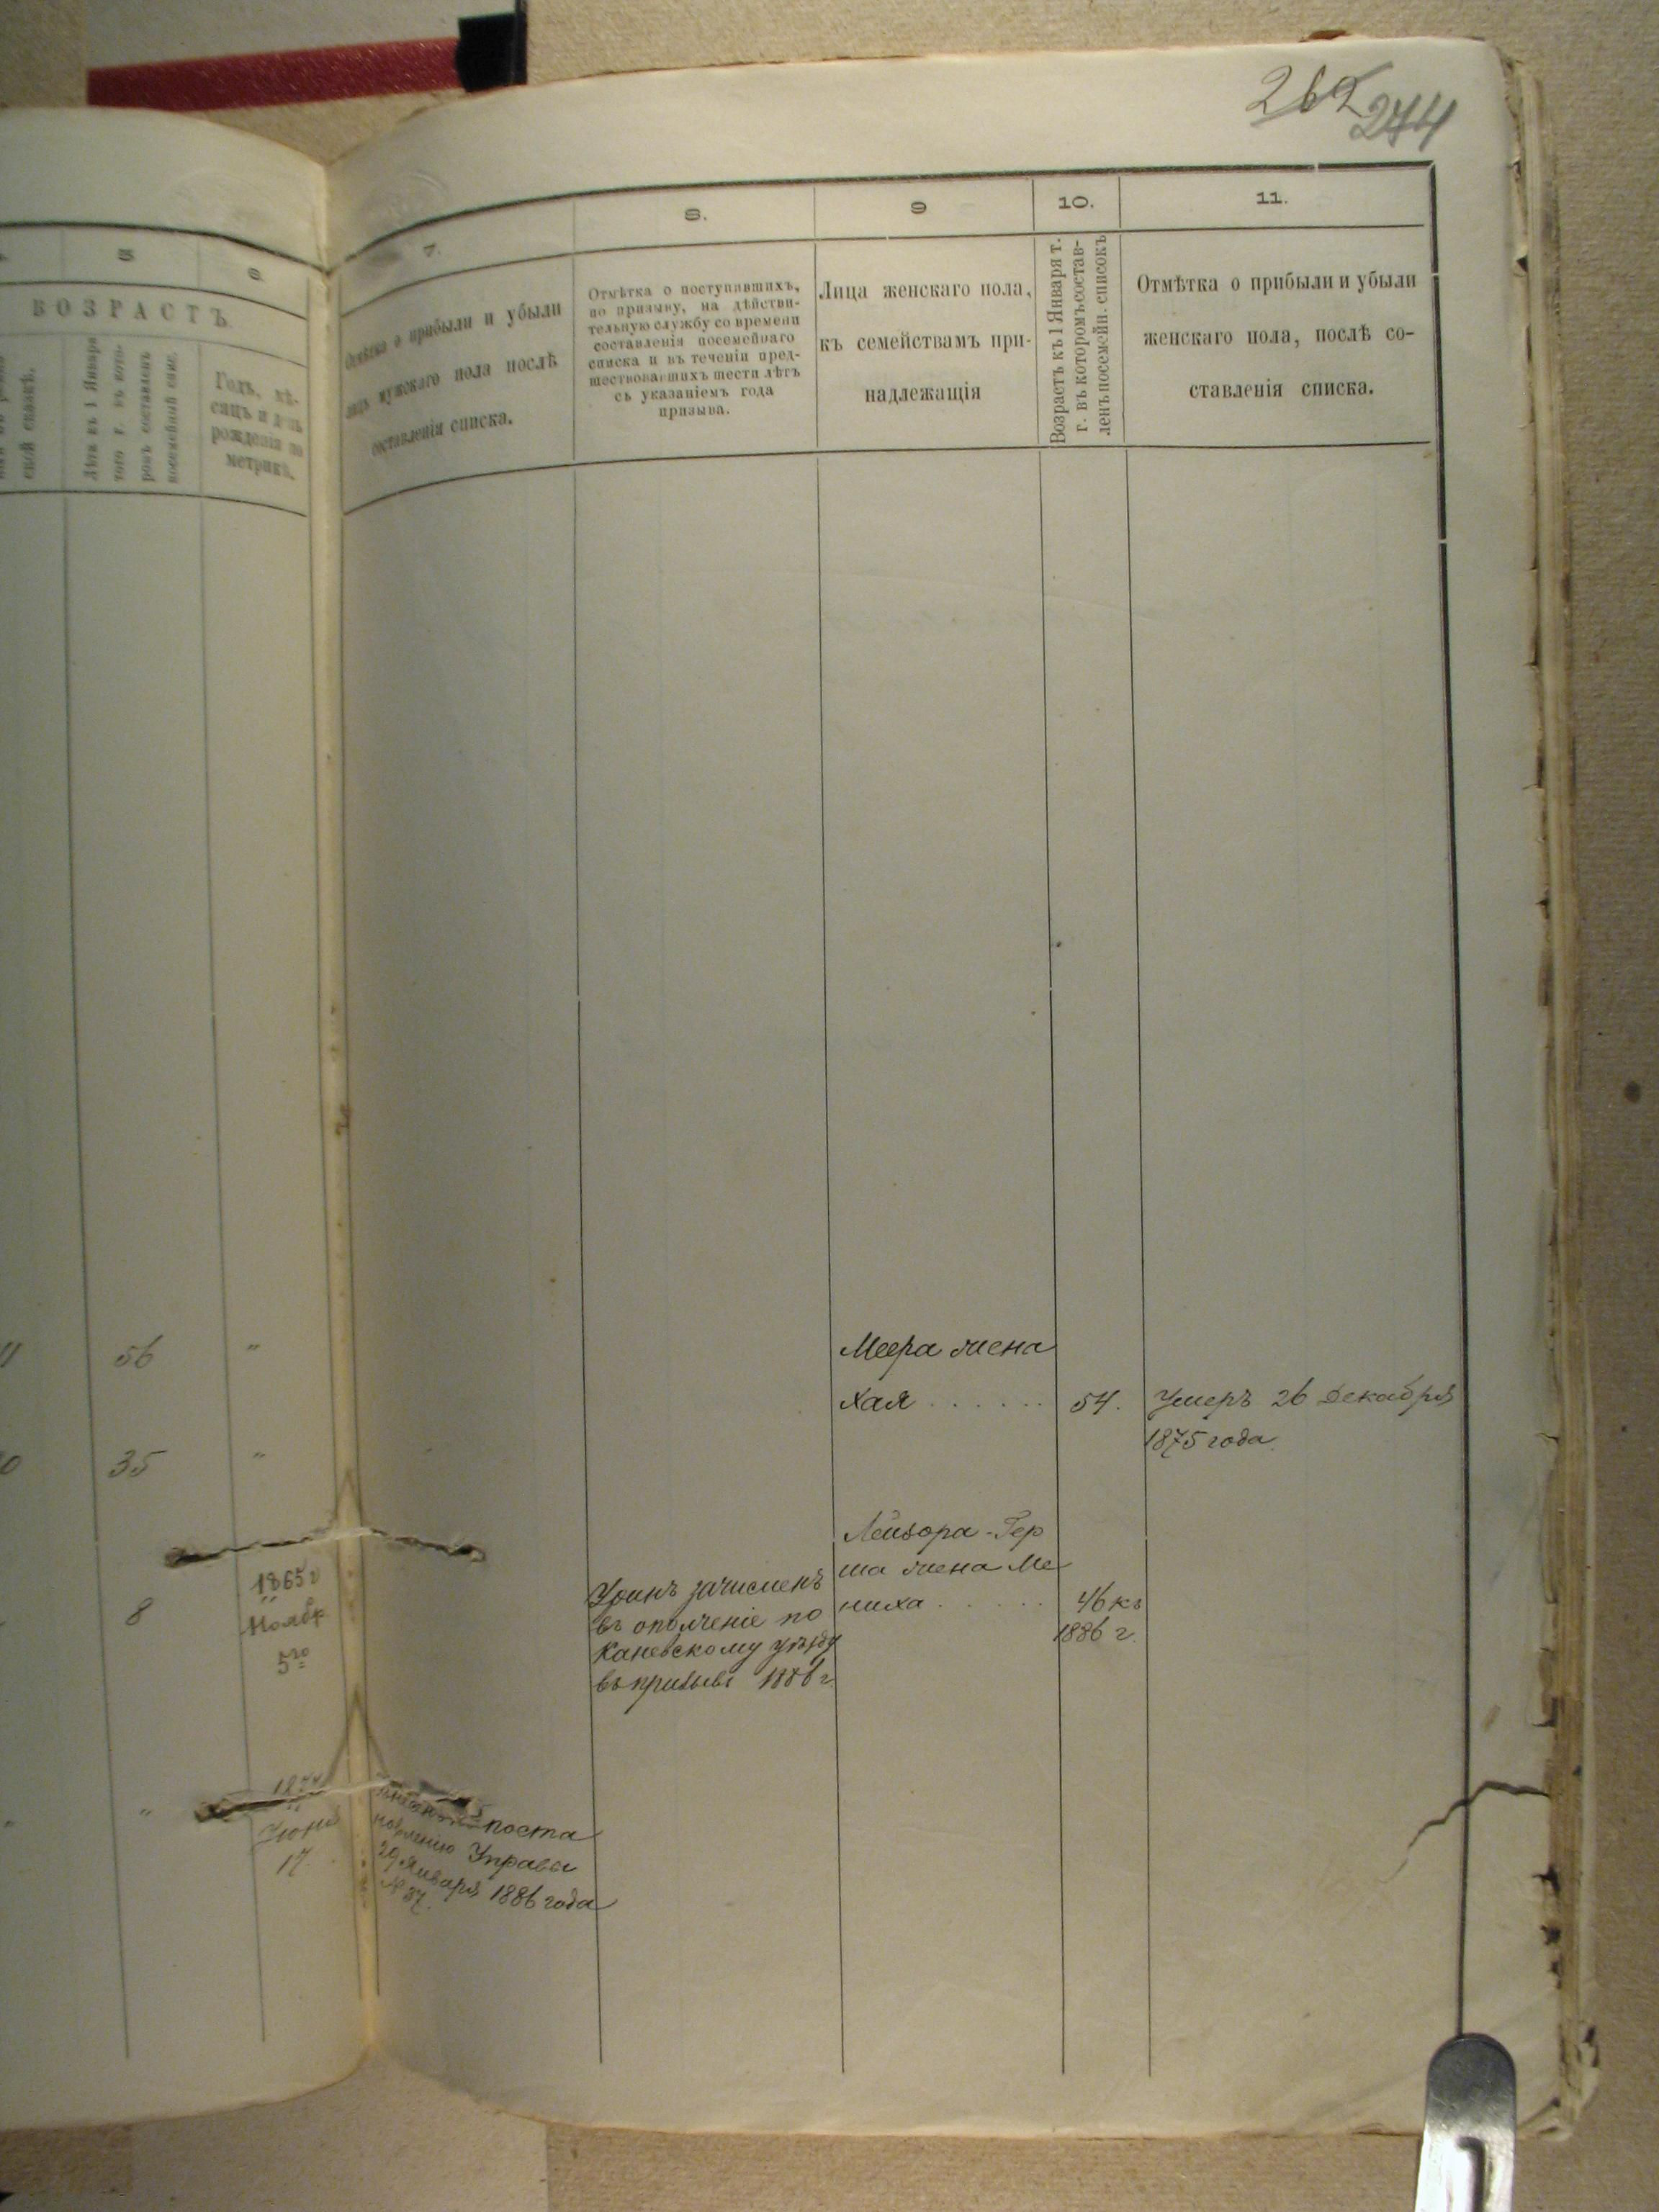 262
274
5
6
ВОЗРАСТЪ
Лѣтъ къ 1 Января
того г. въ кото-
ромъ составленъ
посемейный спис.
Годъ, мѣ-
сяцъ и день
рожденія по
метрикѣ.
7.
Отмѣтка о прибыли и убыли
лицъ мужскаго пола послѣ
составленія списка.
8.
Отмѣтка о поступившихъ,
по призыву, на дѣйстви-
тельную службу со времени
составленія посемейнаго
списка и въ теченіи пред-
шествовавшихъ шести лѣтъ
съ указаніемъ года
призыва.
9
Лица женскаго пола,
къ семействамъ при-
надлежащія
10.
Возрастъ къ 1 Января т.
г. въ которомъ состав-
ленъ посемейн. списокъ
11.
Отмѣтка о прибыли и убыли
женскаго пола, послѣ со-
ставленія списка.
56 "
Меера жена
Хая . . . . . . 54. Умеръ 26 Декабря
1875 года
35 "
Лейзора-Гер
ша жена Ме
ниха . . . . . 46 къ
1886 г.
8
1865 г
Ноябр
5го
зачисленъ
въ ополченіе по
Каневскому уѣзду
въ призывѣ 1886 г.
"
1874
Іюня
17
поста
новленію Управы
29 Января 1886 года
№ 37.